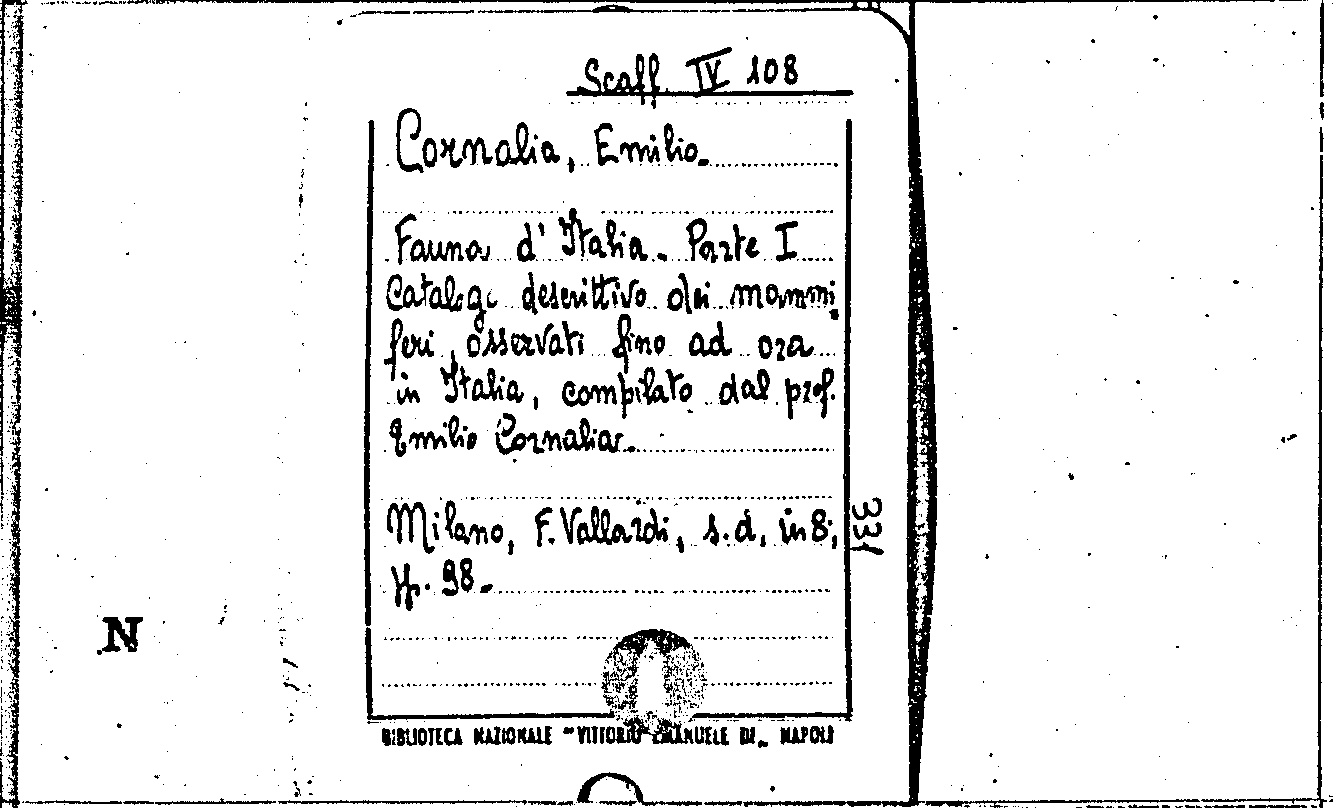 Scaff. IV 108
Cornalia, Emilio.
Fauna d'Italia. Parte I
Catalogo descrittivo dei mammi
feri, osservati fino ad ora
in Italia, compilato dal prof.
Emilio Cornalia.
Milano, F. Vallardi, s.d, in 8;
pp. 98.
331
N
BIBLIOTECA NAZIONALE "VITTORIO EMANUELE III" NAPOLI